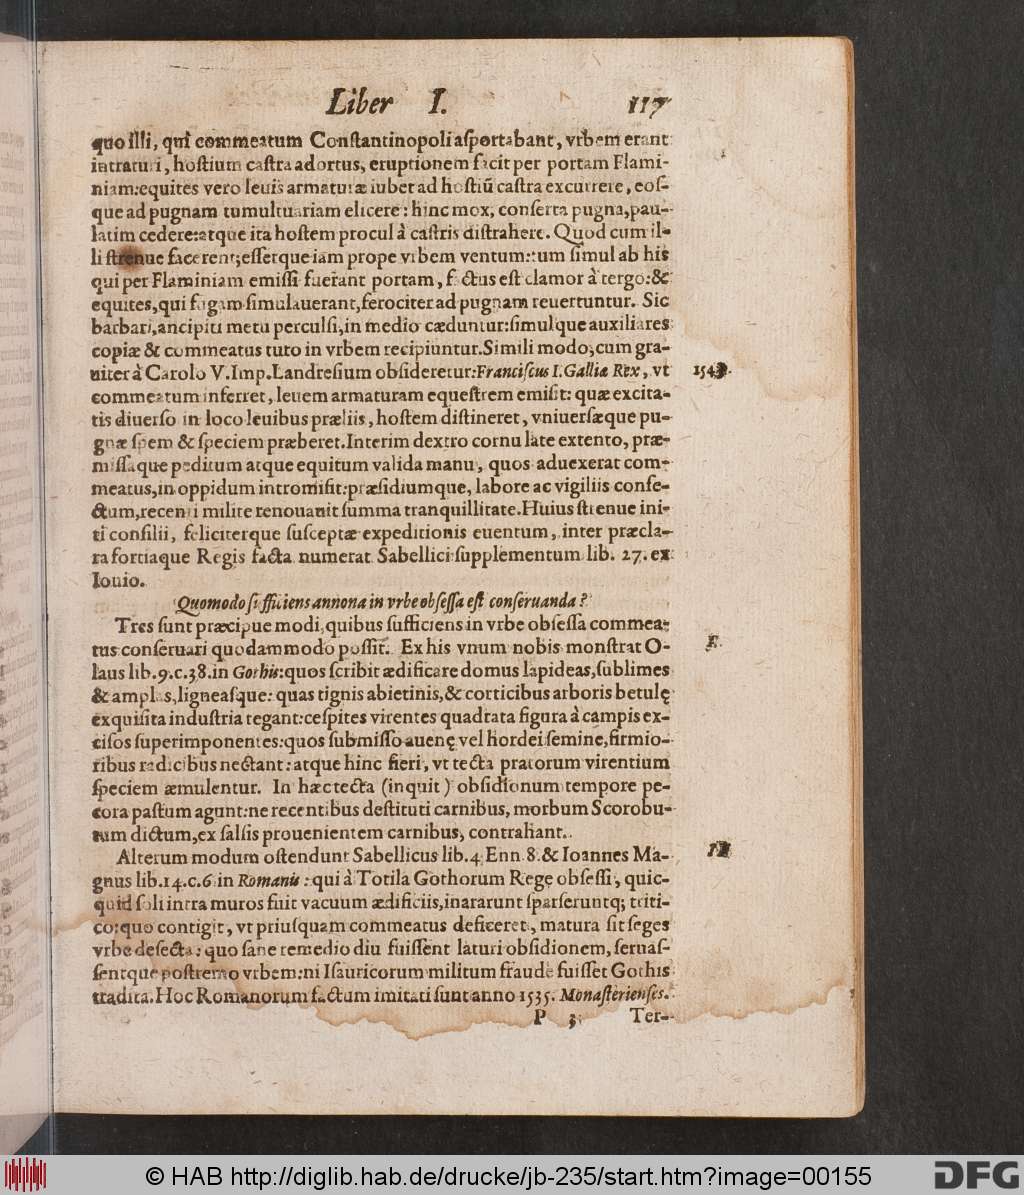 Liber I. 117
quo illi, qui commeatum Constantinopoli asportabant, vrbem erant
intraturi, hostium castra adortus, eruptionem facit per portam Flami-
niam: equites vero leuis armaturæ iubet ad hostiũ castra excurrere, eos-
que ad pugnam tumultuariam elicere: hinc mox, conserta pugna, pau-
latim cedere: atque ita hostem procul à castris distrahere. Quod cum il-
li strenue facerent; essetque iam prope vrbem ventum: tum simul ab his
qui per Flaminiam emissi fuerant portam, factus est clamor à tergo: &
equites, qui fugam simulauerant, ferociter ad pugnam reuertuntur. Sic
barbari, ancipiti metu perculsi, in medio cæduntur: simulque auxiliares
copiæ & commeatus tuto in vrbem recipiuntur. Simili modo, cum gra-
uiter à Carolo V. Imp. Landresium obsideretur: Franciscus I. Galliæ Rex, vt
1543.
commeatum inferret, leuem armaturam equestrem emisit: quæ excita-
tis diuerso in loco leuibus præliis, hostem distineret, vniuersæque pu-
gnæ spem & speciem præberet. Interim dextro cornu late extento, præ-
missaque peditum atque equitum valida manu, quos aduexerat com-
meatus, in oppidum intromisit: præsidiumque, labore ac vigiliis confe-
ctum, recenti milite renouauit summa tranquillitate. Huius strenue ini-
ti consilii, feliciterque susceptæ expeditionis euentum, inter præcla-
ra fortiaque Regis facta numerat Sabellici supplementum lib. 27. ex
Iouio.
Quomodo sufficiens annona in vrbe obsessa est conseruanda?
Tres sunt præcipue modi, quibus sufficiens in vrbe obsessa commea-
tus conseruari quodammodo possit. Ex his vnum nobis monstrat O-
laus lib. 9. c. 38. in Gothis: quos scribit ædificare domus lapideas, sublimes
& amplas, ligneasque: quas tignis abietinis, & corticibus arboris betulę
exquisita industria tegant: cespites virentes quadrata figura à campis ex-
cisos superimponentes: quos submisso auenę vel hordei semine, firmio-
ribus radicibus nectant: atque hinc fieri, vt tecta pratorum virentium
speciem æmulentur. In hæc tecta (inquit) obsidionum tempore pe-
cora pastum agunt: ne recentibus destituti carnibus, morbum Scorobu-
tum dictum, ex salsis prouenientem carnibus, contrahant.
Alterum modum ostendunt Sabellicus lib. 4. Enn. 8. & Ioannes Ma-
II
gnus lib. 14. c. 6. in Romanis: qui à Totila Gothorum Rege obsessi, quic-
quid soli intra muros fuit vacuum ædificiis, inararunt sparseruntq; triti-
co: quo contigit, vt priusquam commeatus deficeret, matura sit seges
vrbe desecta: quo sane remedio diu fuissent laturi obsidionem, seruas-
sentque postremo vrbem: ni Isauricorum militum fraude fuisset Gothis
tradita. Hoc Romanorum factum imitati sunt anno 1535. Monasterienses.
P 3 Ter-
© HAB http://diglib.hab.de/drucke/jb-235/start.htm?image=00155
DFG